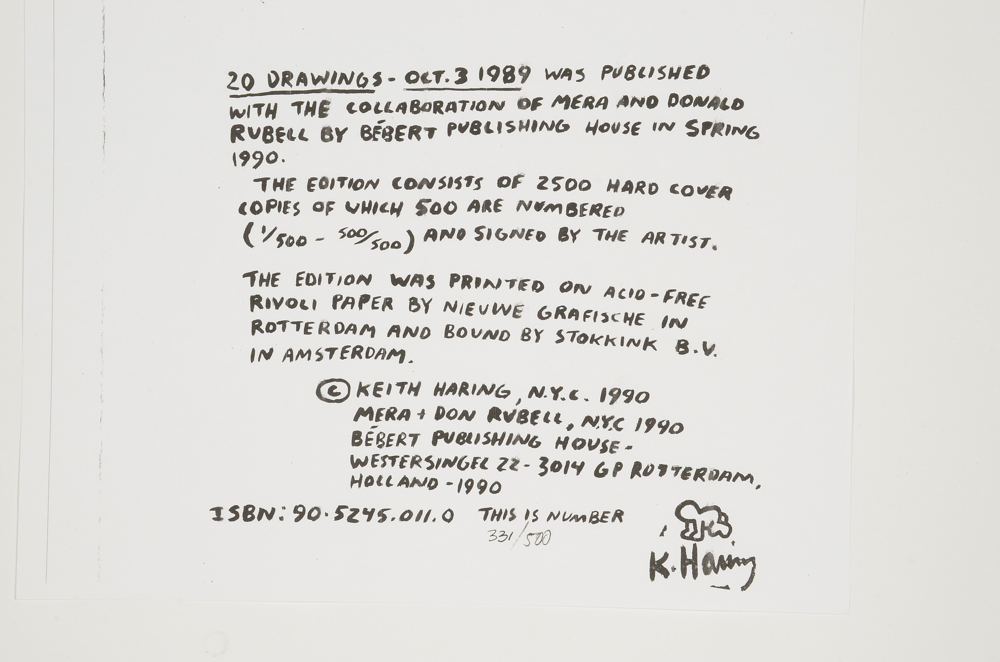 20 DRAWINGS - OCT. 3 1989 WAS PUBLISHED
WITH THE COLLABORATION OF MERA AND DONALD
RUBELL BY BÉBERT PUBLISHING HOUSE IN SPRING
1990.
THE EDITION CONSISTS OF 2500 HARD COVER
COPIES OF WHICH 500 ARE NUMBERED
(1/500 - 500/500) AND SIGNED BY THE ARTIST.
THE EDITION WAS PRINTED ON ACID-FREE
RIVOLI PAPER BY NIEUWE GRAFISCHE IN
ROTTERDAM AND BOUND BY STOKKINK B.V.
IN AMSTERDAM.
© KEITH HARING, N.Y.C. 1990
MERA + DON RUBELL, N.Y.C 1990
BÉBERT PUBLISHING HOUSE -
WESTERSINGEL 22 - 3014 GP ROTTERDAM,
HOLLAND - 1990
ISBN: 90.5245.011.0 THIS IS NUMBER
331/500
K. Haring